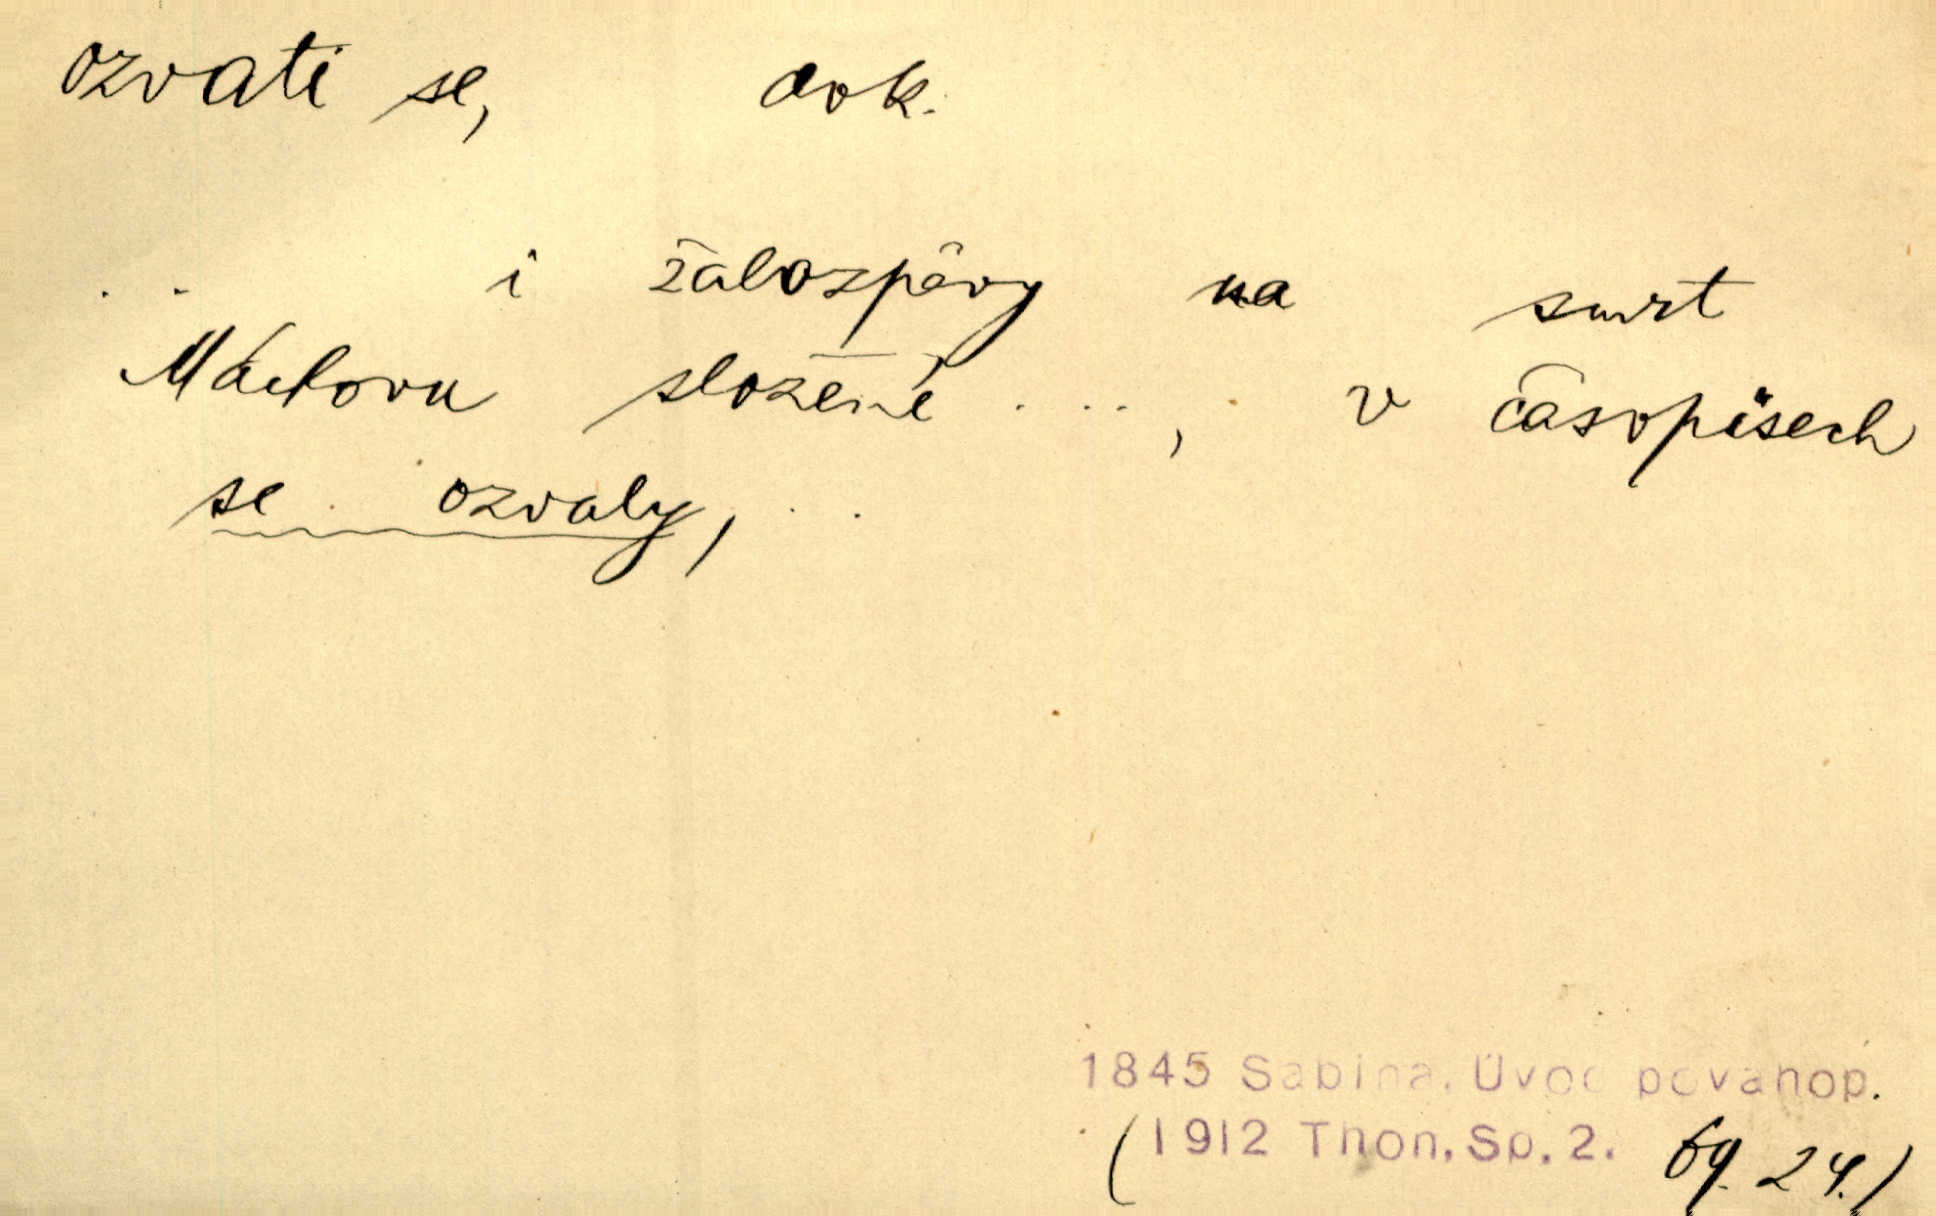 ozvati se, dok.
. . i žalozpěvy na smrt
Máchovu složené . . . , v časopisech
se ozvaly, . .
1845 Sabina. Úvod povahop.
(1912 Thon. Sp. 2. 69. 24.)